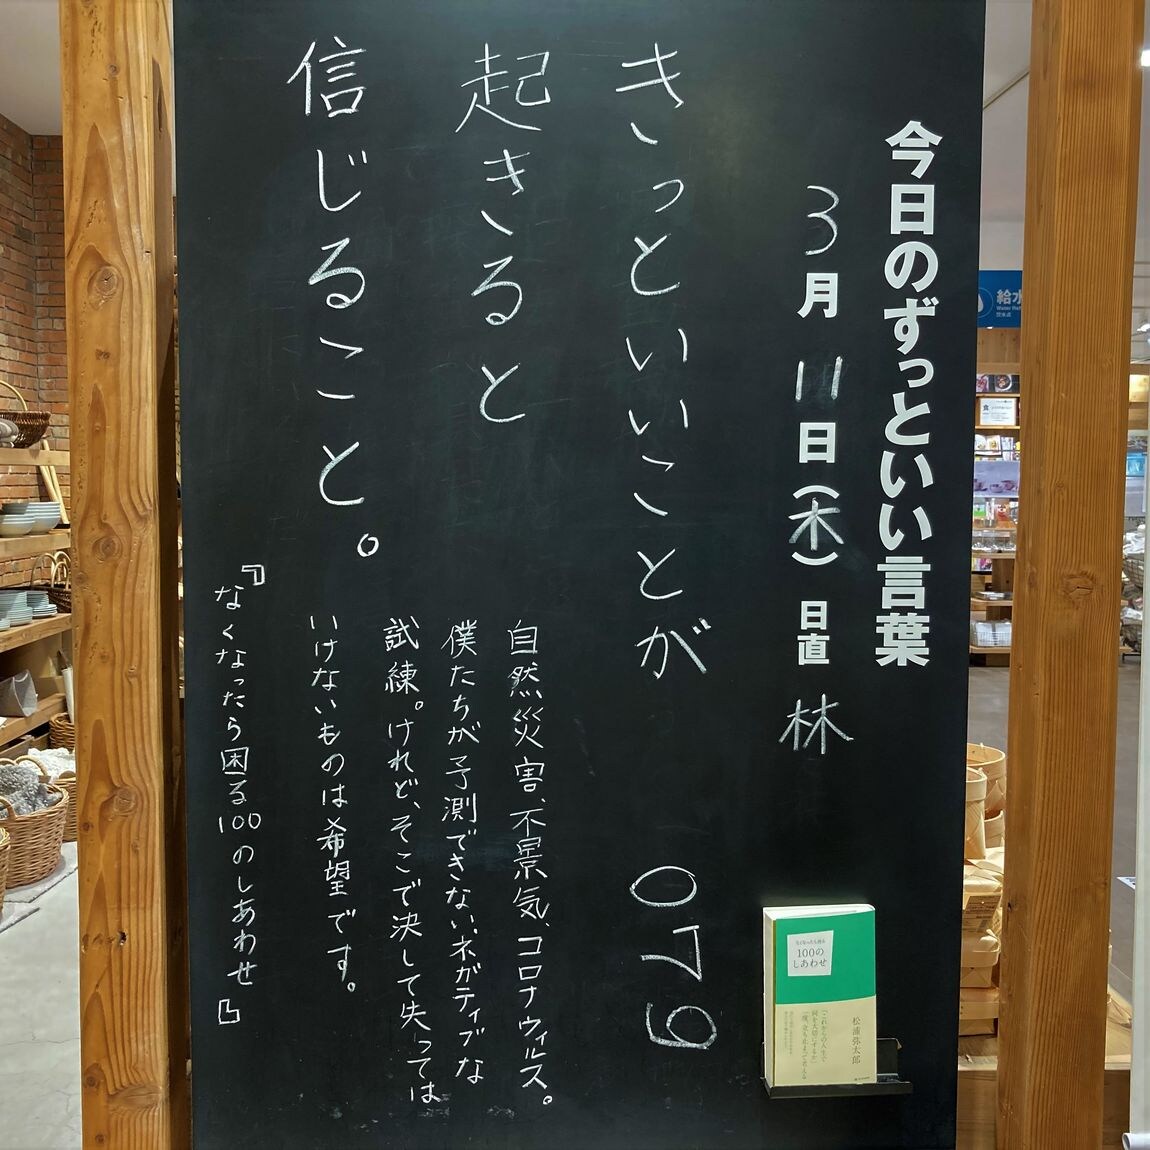 今日のずっといい言葉
3月11日(木) 日直 林
きっといいことが
起きると
信じること。
079
自然災害、不景気、コロナウィルス。
僕たちが予測できない、ネガティブな
試練。けれど、そこで決して失っては
いけないものは希望です。
『なくなったら困る100のしあわせ』
なくなったら困る
100の
しあわせ
松浦弥太郎
「これからの人生で
何を大切にするか」
一度、立ち止まって考える
給水